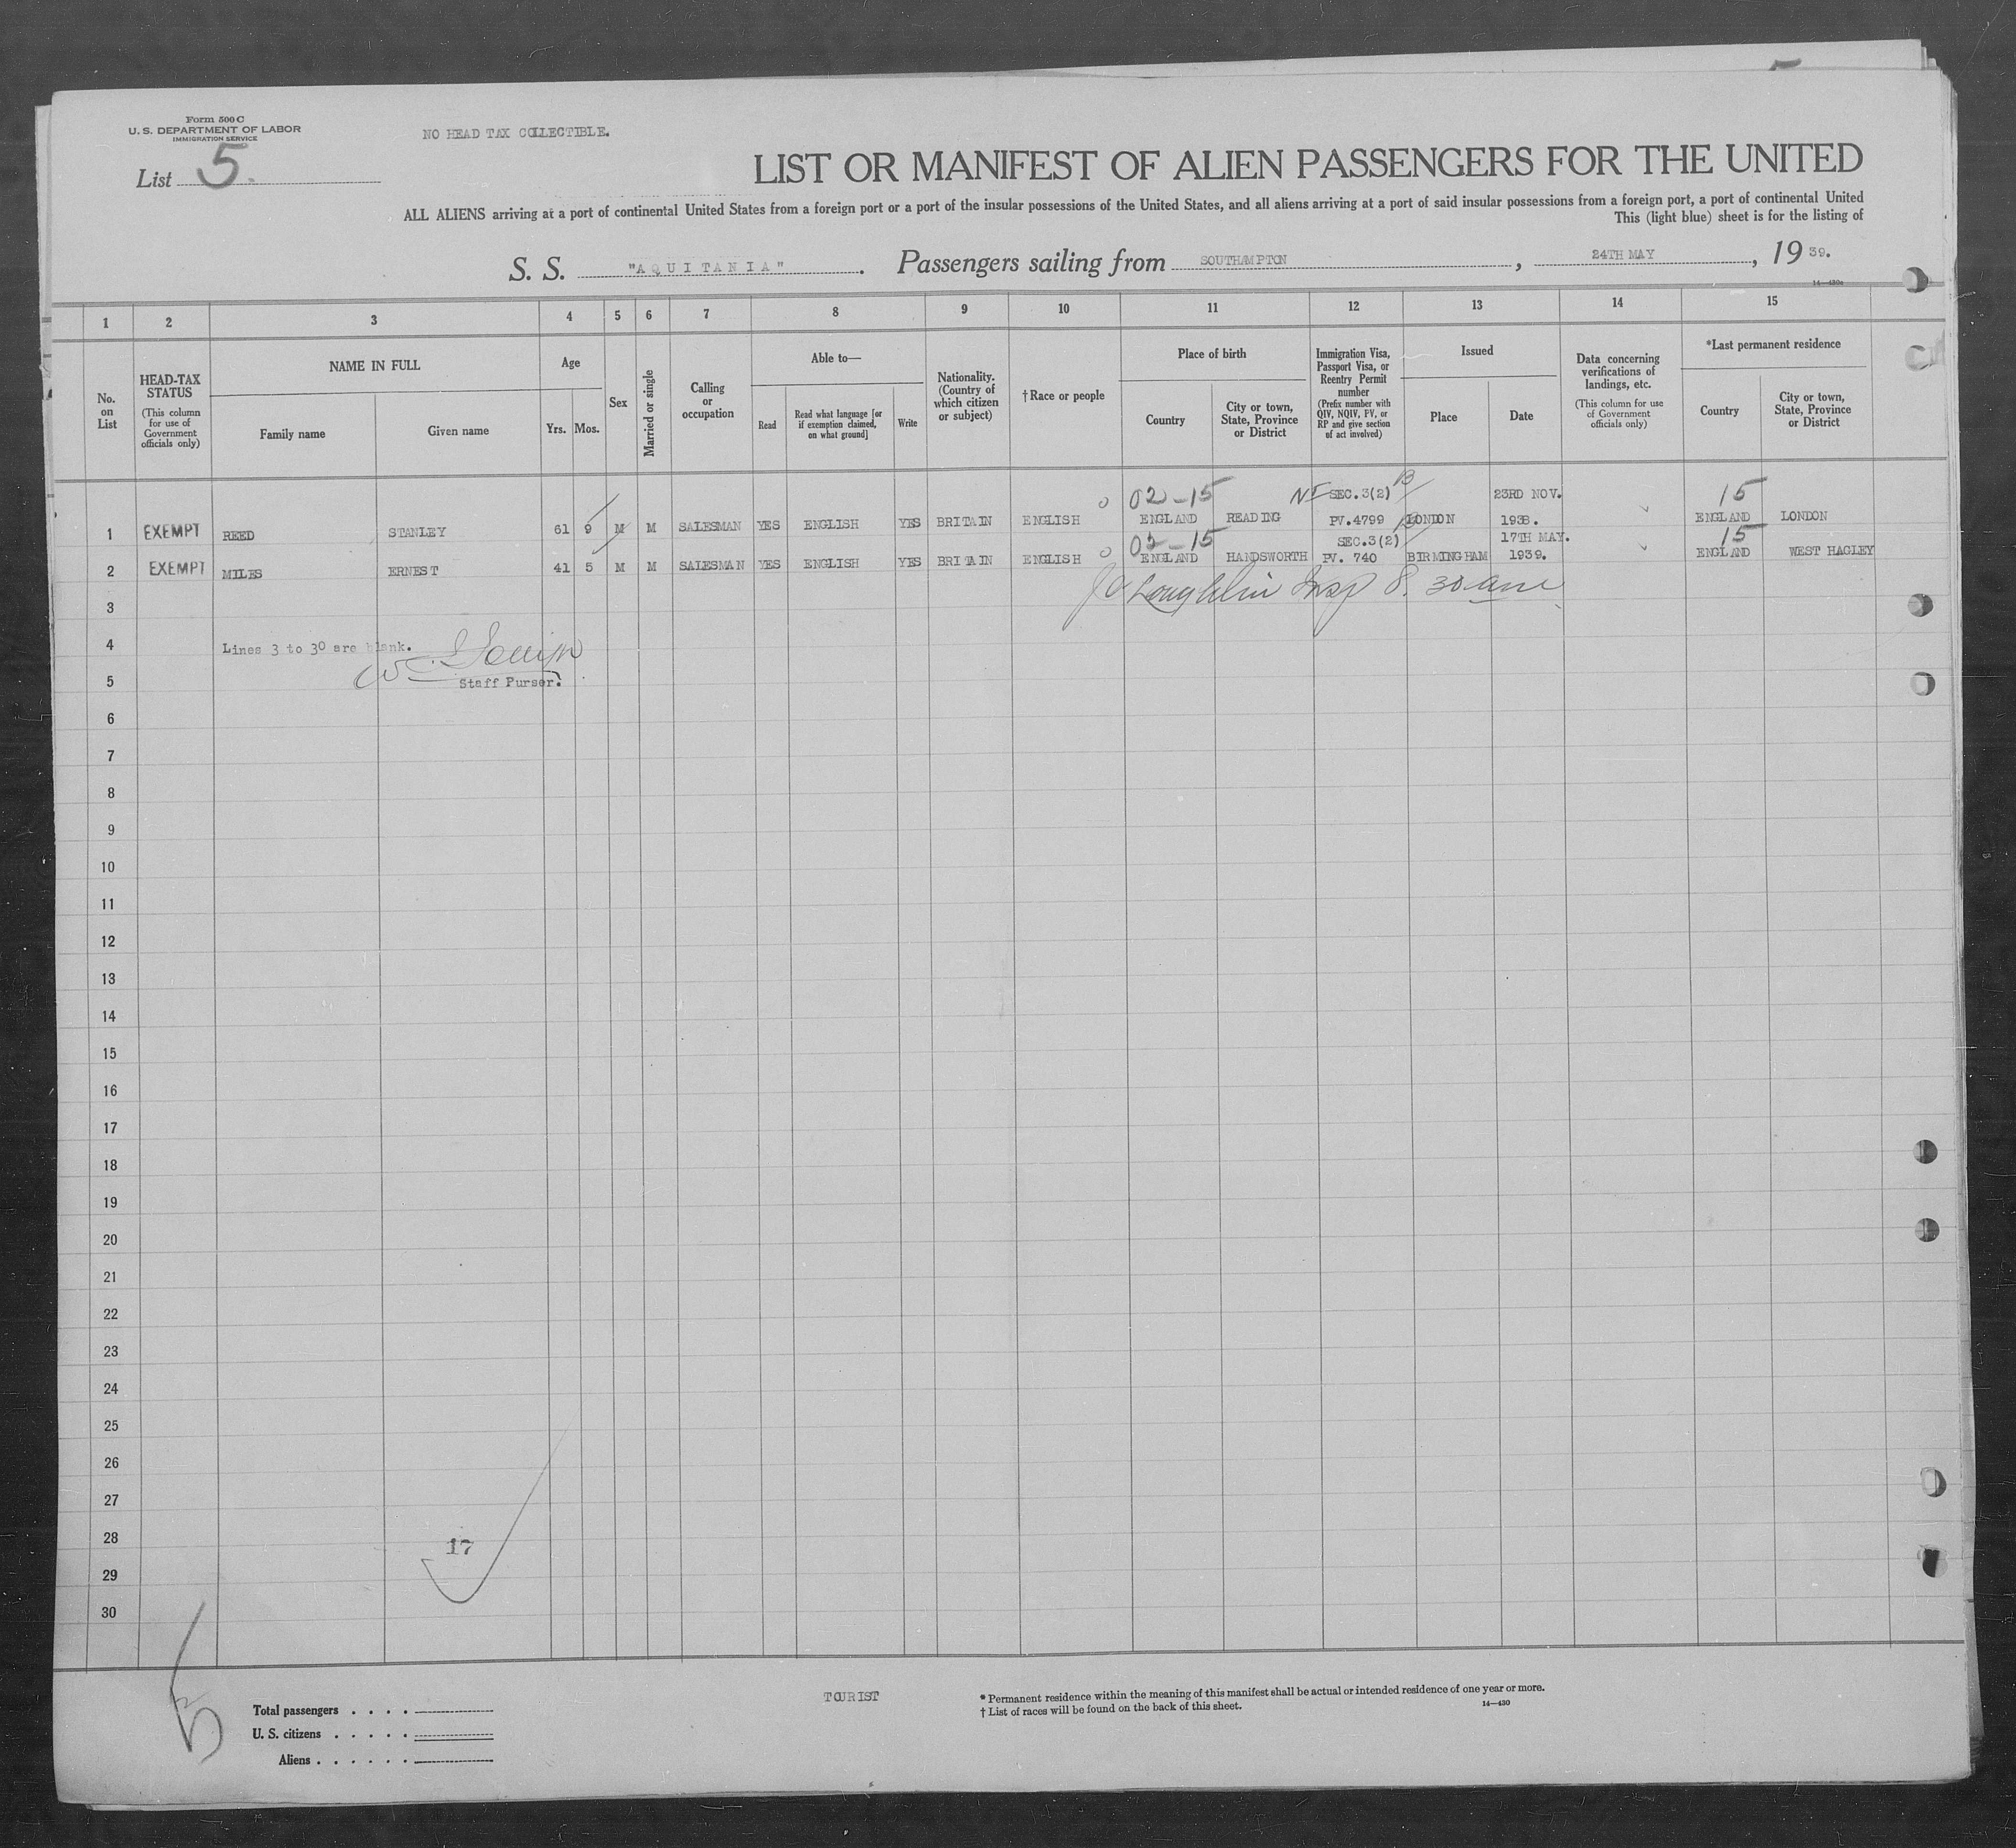 5
Form 500 C
U. S. DEPARTMENT OF LABOR
IMMIGRATION SERVICE
NO HEAD TAX COLLECTIBLE.
List 5.
LIST OR MANIFEST OF ALIEN PASSENGERS FOR THE UNITED
ALL ALIENS arriving at a port of continental United States from a foreign port or a port of the insular possessions of the United States, and all aliens arriving at a port of said insular possessions from a foreign port, a port of continental United
This (light blue) sheet is for the listing of
S. S. "AQUITANIA". Passengers sailing from SOUTHAMPTON, 24TH MAY, 1939.
14—430c
1 2 3 4 5 6 7 8 9 10 11 12 13 14 15
No. on List
HEAD-TAX STATUS (This column for use of Government officials only)
NAME IN FULL
Family name
Given name
Age
Yrs. Mos.
Sex
Married or single
Calling or occupation
Able to—
Read
Read what language [or if exemption claimed, on what ground]
Write
Nationality. (Country of which citizen or subject)
† Race or people
Place of birth
Country
City or town, State, Province or District
Immigration Visa, Passport Visa, or Reentry Permit number (Prefix number with QIV, NQIV, PV, or RP and give section of act involved)
Issued
Place
Date
Data concerning verifications of landings, etc. (This column for use of Government officials only)
*Last permanent residence
Country
City or town, State, Province or District
02-15 SEC.3(2) 23RD NOV. 15
1 EXEMPT REED STANLEY 61 9 M M SALESMAN YES ENGLISH YES BRITAIN ENGLISH ENGLAND READING PV.4799 LONDON 1938. ENGLAND LONDON
02-15 SEC.3(2) 17TH MAY. 15
2 EXEMPT MILES ERNEST 41 5 M M SALESMAN YES ENGLISH YES BRITAIN ENGLISH ENGLAND HANDSWORTH PV. 740 BIRMINGHAM 1939. ENGLAND WEST HAGLEY
3 Loughlin Insp 8.30 am
4 Lines 3 to 30 are blank.
5 Staff Purser.
6
7
8
9
10
11
12
13
14
15
16
17
18
19
20
21
22
23
24
25
26
27
28
17
29
30
5
Total passengers . . . .
U. S. citizens . . . . .
Aliens . . . . . .
TOURIST
* Permanent residence within the meaning of this manifest shall be actual or intended residence of one year or more.
† List of races will be found on the back of this sheet.
14—430